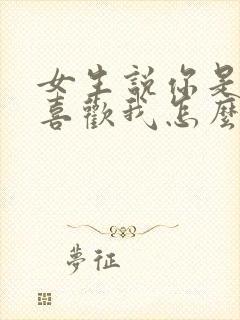 女生說你是
喜歡我怎麼
夢征